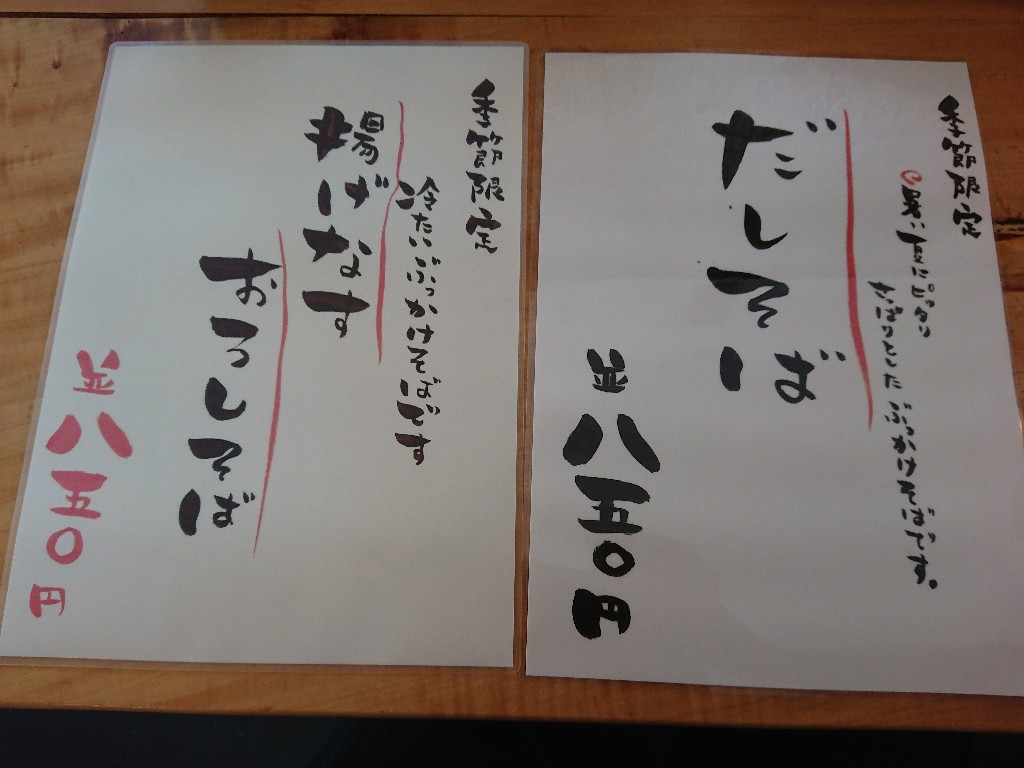 季節限定
暑い夏にピッタリ
さっぱりとした ぶっかけそばです。
だしそば
並 八五〇円
季節限定
冷たいぶっかけそばです
揚げなす
おろしそば
並 八五〇円